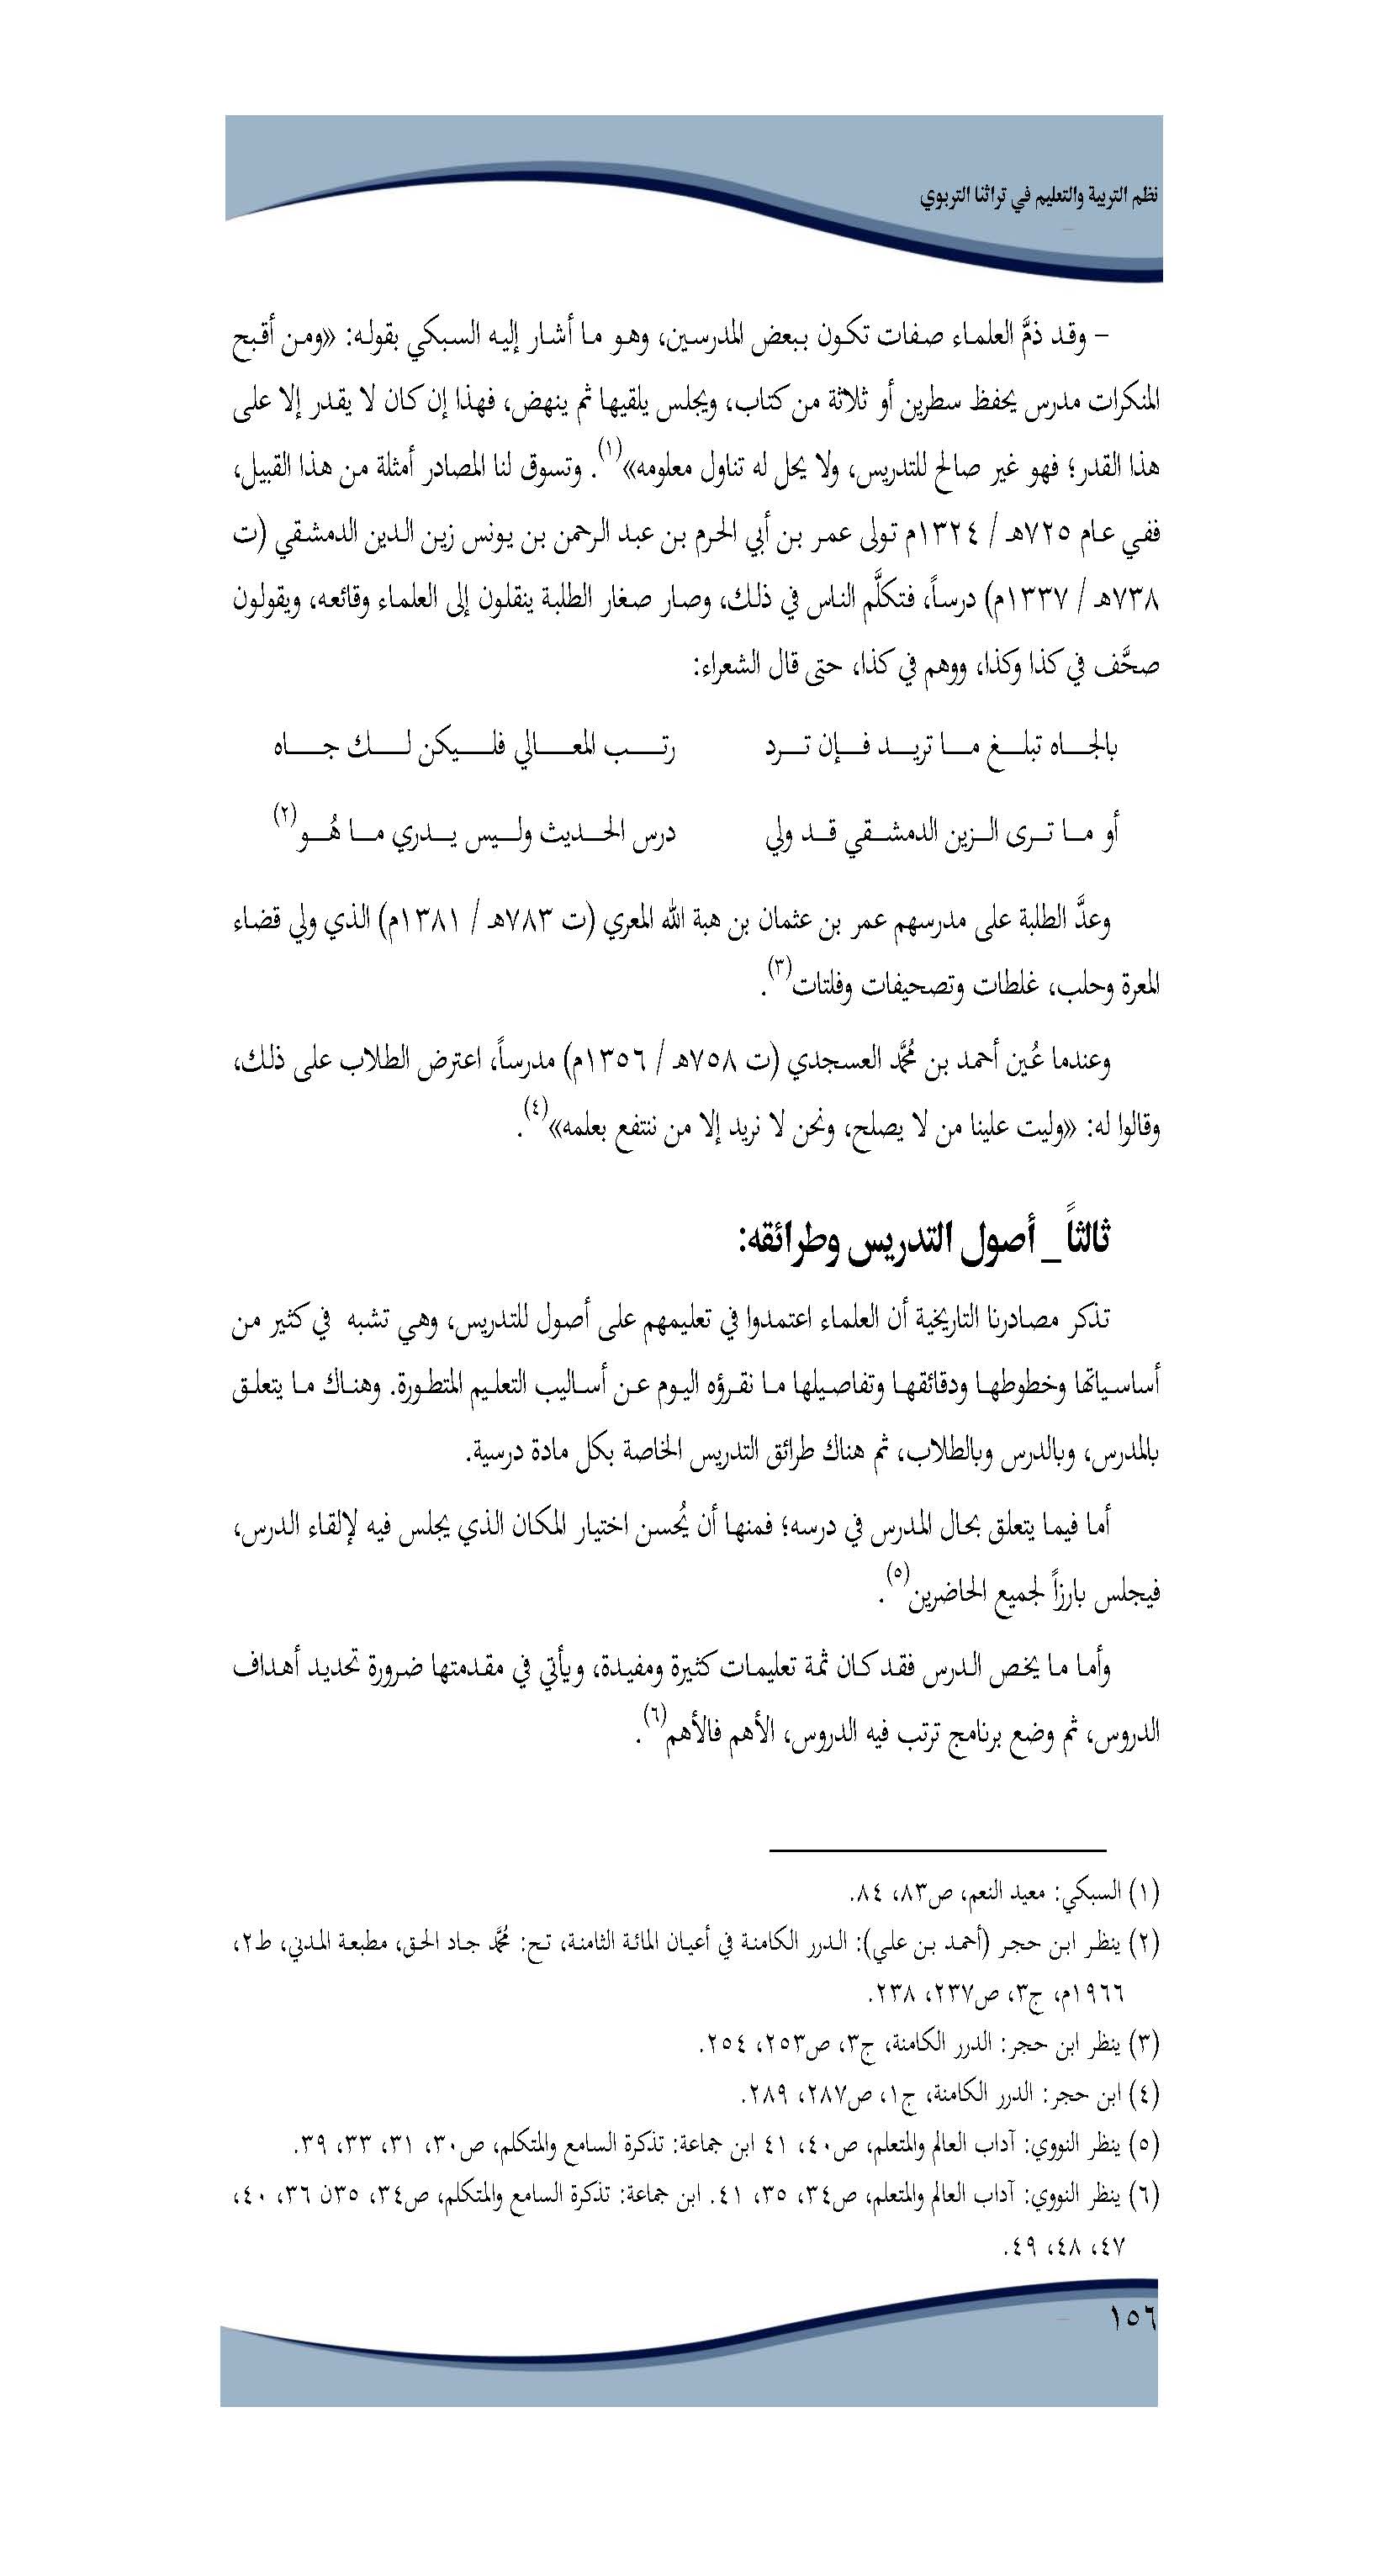 نظم التربية والتعليم في تراثنا التربوي
– وقد ذمَّ العلماء صفات تكون ببعض المدرسين، وهو ما أشار إليه السبكي بقوله: «ومن أقبح
المنكرات مدرس يحفظ سطرين أو ثلاثة من كتاب، ويجلس يلقيها ثم ينهض، فهذا إن كان لا يقدر إلا على
هذا القدر؛ فهو غير صالح للتدريس، ولا يحل له تناول معلومه»(١). وتسوق لنا المصادر أمثلة من هذا القبيل،
ففي عام ٧٢٥هـ / ١٣٢٤م تولى عمر بن أبي الحرم بن عبد الرحمن بن يونس زين الدين الدمشقي (ت
٧٣٨هـ / ١٣٣٧م) درساً، فتكلَّم الناس في ذلك، وصار صغار الطلبة ينقلون إلى العلماء وقائعه، ويقولون
صحَّف في كذا وكذا، ووهم في كذا، حتى قال الشعراء:
بالجاه تبلغ ما تريد فإن ترد رتب المعالي فليكن لك جاه
أو ما ترى الزين الدمشقي قد ولي درس الحديث وليس يدري ما هُو(٢)
وعدَّ الطلبة على مدرسهم عمر بن عثمان بن هبة الله المعري (ت ٧٨٣هـ / ١٣٨١م) الذي ولي قضاء
المعرة وحلب، غلطات وتصحيفات وفلتات(٣).
وعندما عُين أحمد بن مُحمَّد العسجدي (ت ٧٥٨هـ / ١٣٥٦م) مدرساً، اعترض الطلاب على ذلك،
وقالوا له: «وليت علينا من لا يصلح، ونحن لا نريد إلا من ننتفع بعلمه»(٤).
ثالثاً _ أصول التدريس وطرائقه:
تذكر مصادرنا التاريخية أن العلماء اعتمدوا في تعليمهم على أصول للتدريس، وهي تشبه في كثير من
أساسياتها وخطوطها ودقائقها وتفاصيلها ما نقرؤه اليوم عن أساليب التعليم المتطورة. وهناك ما يتعلق
بالمدرس، وبالدرس وبالطلاب، ثم هناك طرائق التدريس الخاصة بكل مادة درسية.
أما فيما يتعلق بحال المدرس في درسه؛ فمنها أن يُحسن اختيار المكان الذي يجلس فيه لإلقاء الدرس،
فيجلس بارزاً لجميع الحاضرين(٥).
وأما ما يخص الدرس فقد كان ثمة تعليمات كثيرة ومفيدة، ويأتي في مقدمتها ضرورة تحديد أهداف
الدروس، ثم وضع برنامج ترتب فيه الدروس، الأهم فالأهم(٦).
(١) السبكي: معيد النعم، ص٨٣، ٨٤.
(٢) ينظر ابن حجر (أحمد بن علي): الدرر الكامنة في أعيان المائة الثامنة، تح: مُحمَّد جاد الحق، مطبعة المدني، ط٢،
١٩٦٦م، ج٣، ص٢٣٧، ٢٣٨.
(٣) ينظر ابن حجر: الدرر الكامنة، ج٣، ص٢٥٣، ٢٥٤.
(٤) ابن حجر: الدرر الكامنة، ج١، ص٢٨٧، ٢٨٩.
(٥) ينظر النووي: آداب العالم والمتعلم، ص٤٠، ٤١ ابن جماعة: تذكرة السامع والمتكلم، ص٣٠، ٣١، ٣٣، ٣٩.
(٦) ينظر النووي: آداب العالم والمتعلم، ص٣٤، ٣٥، ٤١. ابن جماعة: تذكرة السامع والمتكلم، ص٣٤، ٣٥ن ٣٦، ٤٠،
٤٧، ٤٨، ٤٩.
١٥٦